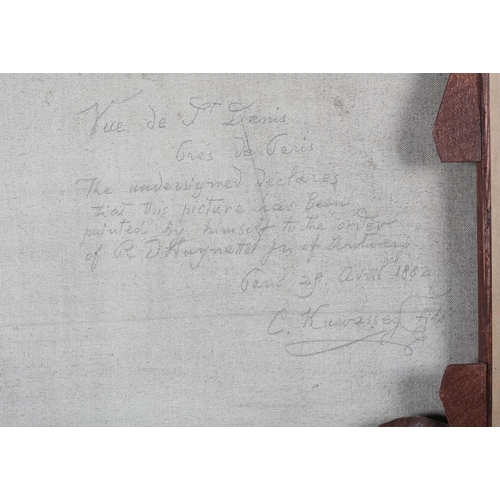 Vue de St Denis
Pres de Paris
The undersigned declares
that this picture has been
painted by himself to the order
of R. D. Huynetter jr. of Antwerp
Paris 29. Avril 1882
C. Kuwasseg fils